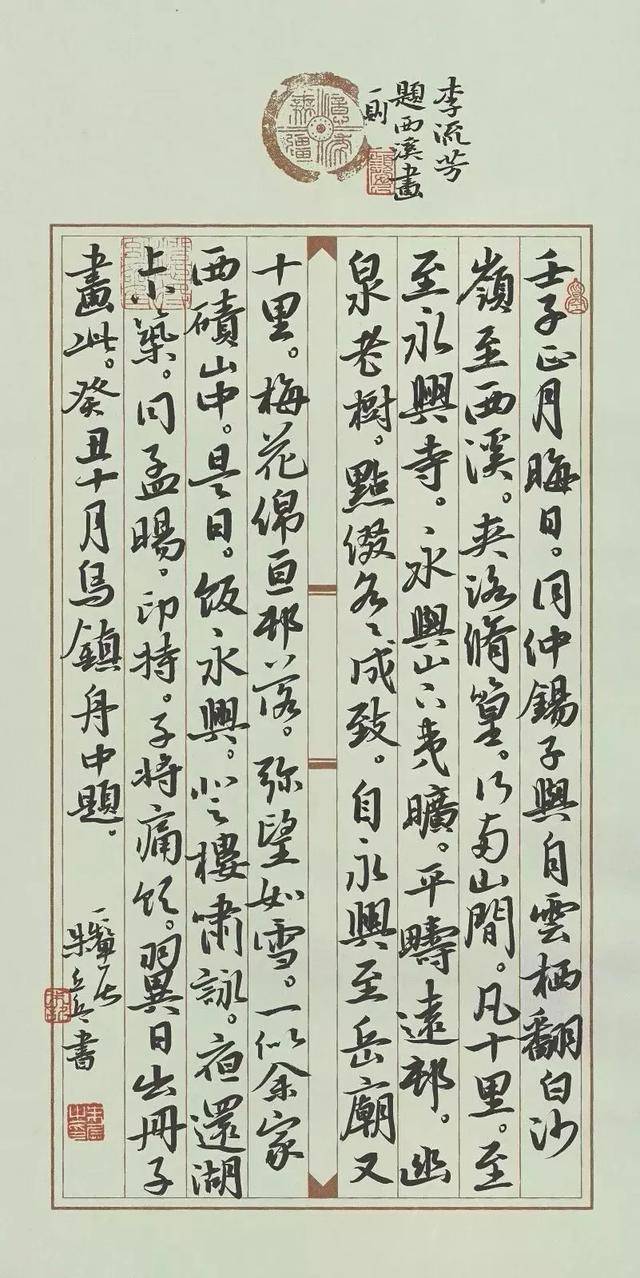 李流芳
題西溪畫
一則
壬子正月晦日。同仲錫子與自雲栖翻白沙
嶺至西溪。夾路脩篁。行兩山間。凡十里。至
至永興寺。永興山下夷曠。平疇遠邨。幽
泉老樹。點綴各各成致。自永興至岳廟又
十里。梅花綿亘邨落。弥望如雪。一似余家
西磧山中。是日。飯永興。登樓嘯詠。夜還湖
上小築。同孟暘。印持。子將痛飲。翼日出冊子
畫此。癸丑十月烏鎮舟中題。
書